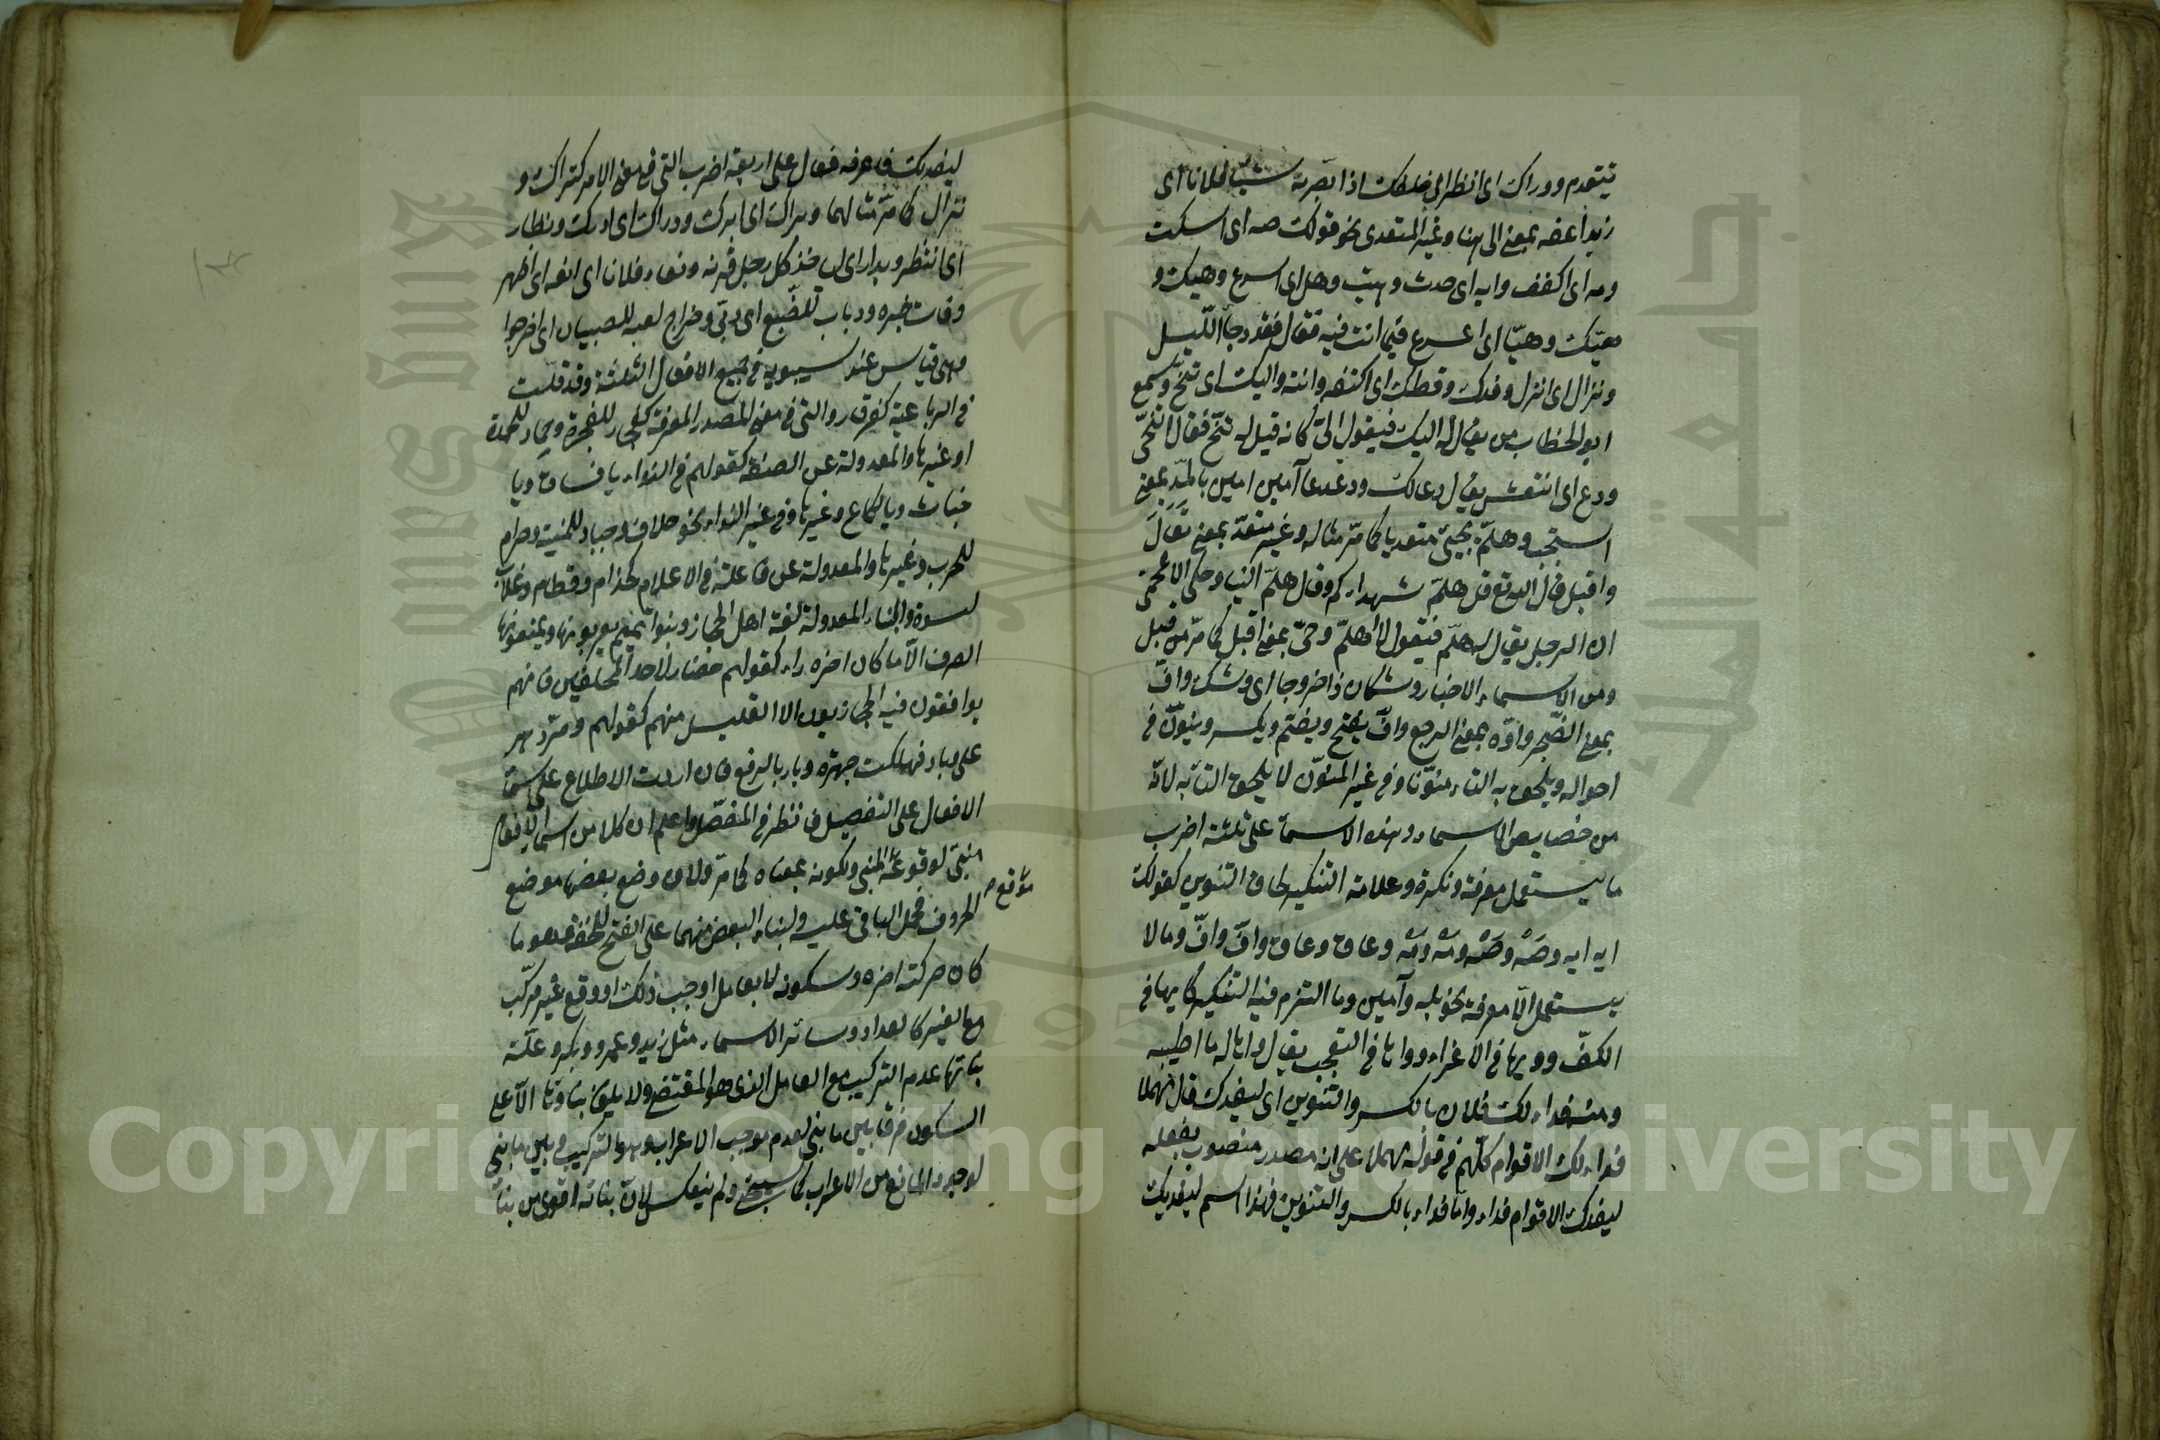 يتقدم ووراك اى انظر الى خلفك اذا بصرته شيئا فلانا اى
زيدا عضه بمعنى الى هنا وغير المتعدى نحو قولك صه اى اسكت
ومه اى اكفف وايه اى حدث وهيت وهل اى اسرع وهيك و
هيك وهيا اى اسرع فيما انت فيه فقال فقد دجا الليل
ونزال اى انزل وقدك وقطك اى اكتف وانته واليك اى تنح وسمع
ابو الخطاب من يقال له اليك فيقول الىّ كانه قيل له تنح فقال اتنحى
ودع اى انتعش يقال دعا لك ودعدعا آمين امين بالمد بمعنى
استجب وهلمّ يجئ متعديا كما مر مثاله وغير متعد بمعنى تعال
واقبل قال الله تع قل هلمّ شهداءكم وقال هلمّ الينا وحكى الاصمعى
ان الرجل يقال له هلمّ فيقول لا أهلمّ وحىّ بمعنى اقبل كما مر من قبل
ومن الاسماء الاخبار وشكان ذا خروجا اى وشك وافّ
بمعنى التضجر واوّه بمعنى التوجع وافّ يفتح ويضم ويكسر وينوّن فى
احواله ويلحق به التاء منوّنا وفى غير المنوّن لا يلحق التاء به لانه
من خصايص الاسماء وهذه الاسماء على ثلثة اضرب
ما يستعمل معرفة ونكرة وعلامة التنكير لحاق التنوين كقولك
ايه ايه وصَهْ وصَهٍ ومَهْ ومَهٍ وغاق وغاق وافّ وافّ وما لا
يستعمل الّا معرفة نحو بله وآمين وما التزم فيه التنكير كايها فى
الكفّ وويها فى الاغراء وواها فى التعجب يقال واها له ما اطيبه
ومنه فداء لك فلان بالكسر والتنوين اى ليفدك قال مهلا
فداء لك الاقوام كلهم فى قوله مهلا على انه مصدر منصوب بفعله
ليفدك الاقوام فداء واما فداء بالكسر والتنوين فهذا اسم ليفديك
ليفديك فعرفه فعال على اربعة اضرب التى فى معنى الامر كتراك و
نزال كما مر مثالهما وبراك اى ابرك ودراك اى ادرك ونظار
اى انتظر وبداد اى لياخذ كل رجل قرنه ونعاء فلانا اى انعه اى اظهر
وفات خبره ودباب للضبع اى دبّى وخراج لعبة للصبيان اى اخرجوا
وهى قياس عند سيبويه فى جميع الافعال الثلثة وقد قلت
فى الرباعية كقرقار والتى فى معنى المصدر المعرفة كفجار للفجرة وجماد للجمدة
او غيرها والمعدولة عن الصفة كقولهم فى النداء يا فساق ويا
خباث ويا لكاع وغيرها وفى غير النداء نحو حلاق وجباذ للمنية وصرام
للحرب وغيرها والمعدولة عن فاعلة فى الاعلام كحذام وقطام وغلاب
لنسوة والبناء المعدولة لغة اهل الحجاز وبنو تميم يعربونها ويمنعونها
الصرف الّا ما كان اخره راء كقولهم حضار لاحد المحلفين فانهم
يوافقون فيه الحجازيون الا القليل منهم كقولهم ومر دهر
على وبار فهلكت جهرة وبار بالرفع فان اردت الاطلاع على اسماء
الافعال على التفصيل فانظر فى المفصّل واعلم ان كلا من اسماء الافعال
مبنى لوقوعه المبنى ولكونه بمعناه كما مر ولان وضع بعضها موضع
موقع صح
الحروف فحمل الباقى عليه ولبناء البعض منهما على الفتح للخفة
كان حركة اخره وسكونه لا بعامل اوجب ذلك او وقع غير مركّب
مع الغير كالاعداد وسائر الاسماء مثل زيد وعمرو وبكر وعلّة
بنائها عدم التركيب مع العامل الذى هو المقتضى ولا يليق بناؤها الّا على
السكون فرقا بين ما بنى لعدم موجب الاعراب وهو التركيب وبين ما بنى
لوجود المانع من الاعراب كما سيجئ ولم ينعكس لان بنائه اقوى من بناء
Copyright © King Saud University